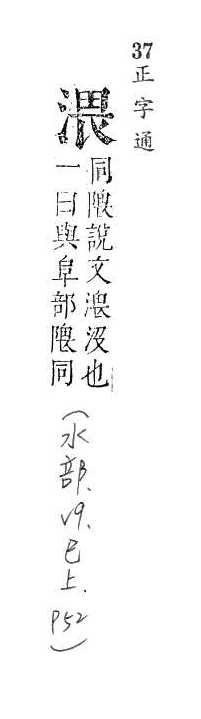 37 正字通
渨
同隈說文渨沒也
一曰與阜部隈同
(水部、V9、巳上、P52)